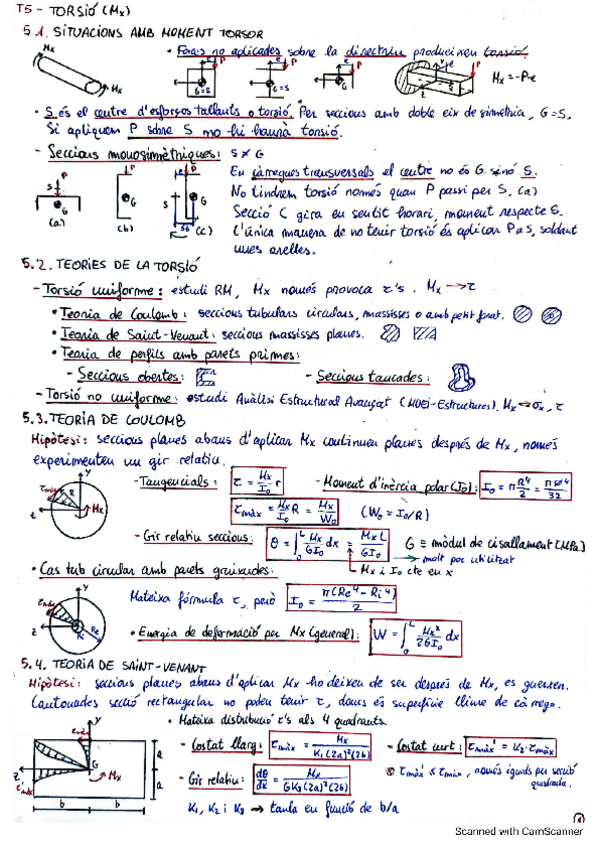 T5 - TORSIÓ (Mx)
5.1. SITUACIONS AMB MOMENT TORSOR
• Forces no aplicades sobre la directriu produeixen torsió.
Mx
Mx
P
G=S
P
e
P
e
P
y
z
Mx = -P·e
• S és el centre d'esforços tallants o torsió. Per seccions amb doble eix de simetria, G=S,
Si apliquem P sobre S no hi haurà torsió.
- Seccions monosimètriques: S ≠ G
En càrregues transversals el centre no és G sinó S.
No tindrem torsió només quan P passi per S, (a)
Secció C gira en sentit horari, moment respecte S.
L'única manera de no tenir torsió és aplicar P a S, soldant
unes anelles.
S
P
G
(a)
P
G
(b)
S
P
G
(c)
5.2. TEORIES DE LA TORSIÓ
- Torsió uniforme: estudi RM, Mx només provoca τ's. Mx → τ
• Teoria de Coulomb: seccions tubulars circulars, massisses o amb petit forat.
• Teoria de Saint-Venant: seccions massisses planes.
• Teoria de perfils amb parets primes:
- Seccions obertes:
- Seccions tancades:
- Torsió no uniforme: estudi Anàlisi Estructural Avançat (MUEI-Estructures). Mx → σx, τ
5.3. TEORIA DE COULOMB
Hipòtesi: seccions planes abans d'aplicar Mx continuen planes després de Mx, només
experimenten un gir relatiu.
- Tangencials: τ = Mx/I₀ r
- Moment d'inèrcia polar (I₀): I₀ = πR⁴/2 = πø⁴/32
τmàx = Mx/I₀ R = Mx/W₀ (W₀ = I₀/R)
- Gir relatiu seccions: θ = ∫₀ᴸ Mx/GI₀ dx = Mx L/GI₀
G ≡ mòdul de cisallament (MPa)
molt poc utilitzat
Mx i I₀ cte en x
• Cas tub circular amb parets gruixudes:
Mateixa fórmula τ, però I₀ = π(Re⁴ - Ri⁴)/2
• Energia de deformació per Mx (general): W = ∫₀ᴸ Mx²/2GI₀ dx
5.4. TEORIA DE SAINT-VENANT
Hipòtesi: seccions planes abans d'aplicar Mx ho deixen de ser després de Mx, es guerxen.
Cantonades secció rectangular no poden tenir τ, doncs és superfície lliure de càrrega.
• Mateixa distribució τ's als 4 quadrants
- Costat llarg: τmàx = Mx/K₁(2a)²(2b)
- Costat curt: τmàx' = K₂·τmàx
- Gir relatiu: dθ/dx = Mx/GK₃(2a)³(2b)
τmàx' < τmàx, només iguals per secció
quadrada.
K₁, K₂ i K₃ → taula en funció de b/a
y
z
G
Mx
a
a
b
b
Scanned with CamScanner